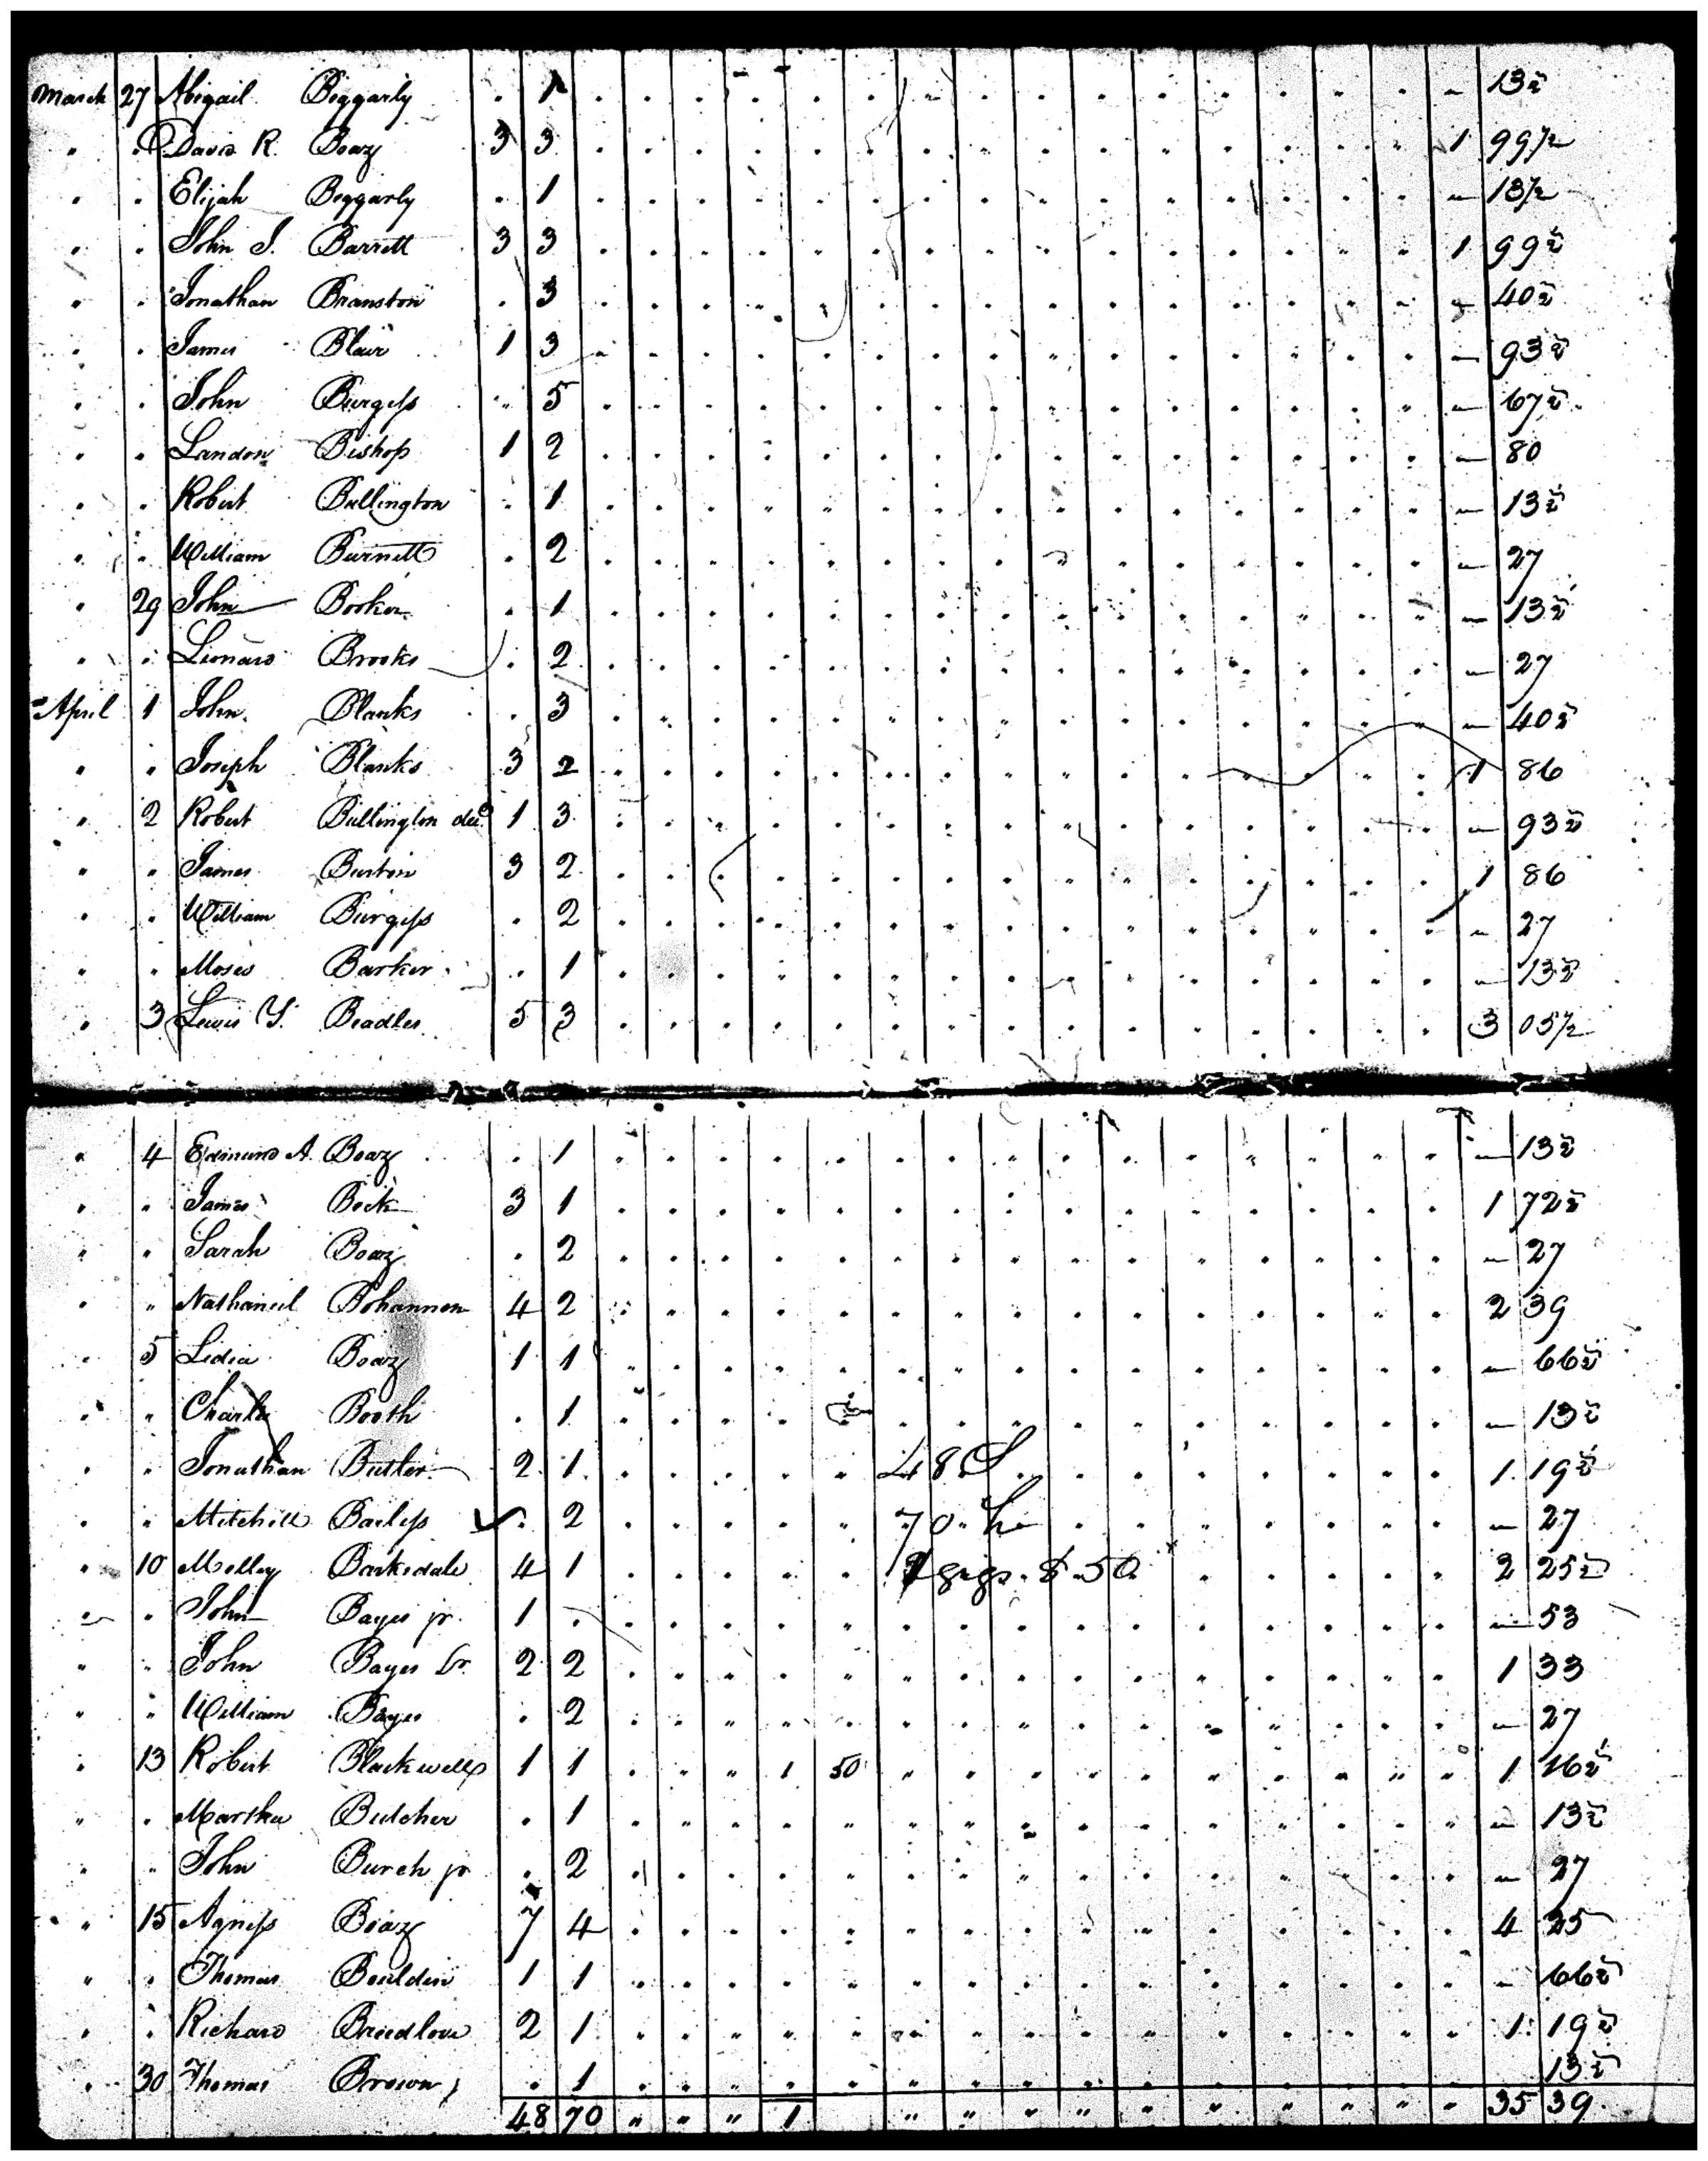 March 27 Abigail Beggarly . 1 — 13½
" . David R. Boaz 3 3 1 99½
" " Elijah Beggarly . 1 — 13½
" . John S. Barrett 3 3 1 99½
" " Jonathan Branston . 3 — 40½
" . James Blair 1 3 — 93½
" . John Burgess " 5 — 67½
" " Landon Bishop 1 2 — 80
" " Robert Bullington . 1 — 13½
" " William Burnett . 2 — 27
" 29 John Booker . 1 — 13½
" " Lionard Brooks . 2 — 27
April 1 John Blanks . 3 — 40½
" " Joseph Blanks 3 2 1 86
" 2 Robert Bullington decd. 1 3 — 93½
" " James Burton 3 2 1 86
" " William Burgess . 2 — 27
" " Moses Barker . 1 — 13½
" 3 Lewis Y. Beadles 5 3 3 05½
" 4 Edmund A. Boaz . 1 — 13½
" " James Beck 3 1 1 72½
" " Sarah Boaz . 2 — 27
" " Nathaniel Bohannon 4 2 2 39
" 5 Lidia Boaz 1 1 — 66½
" " Charles Booth . 1 — 13½
" " Jonathan Butler 2 1 48 S 1 19½
" " Mitchell Bailess . 2 70 h — 27
" 10 Molley Barksdale 4 1 1 gigs $ 50 2 25½
" " John Bayes jr. 1 . — 53
" " John Bayes Sr. 2 2 1 33
" " William Bayes . 2 — 27
" 13 Robert Blackwell 1 1 . " " 1 50 1 16½
" . Martha Butcher . 1 — 13½
" " John Burch jr . 2 — 27
" 15 Agness Boaz 7 4 4 25
" " Thomas Bouldin 1 1 — 66½
" " Richard Breedlove 2 1 1 19½
" 30 Thomas Brown . 1 13½
48 70 " " " 1 35 39